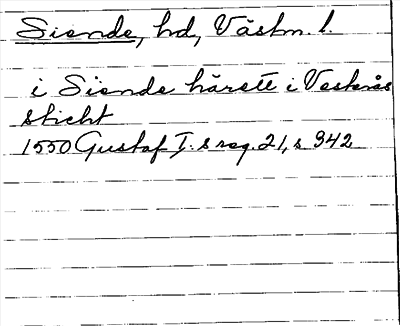 Siende, hd, Västm. l.
i Siende härett i Vesterås
sticht
1550 Gustaf I. s reg. 21, s 342